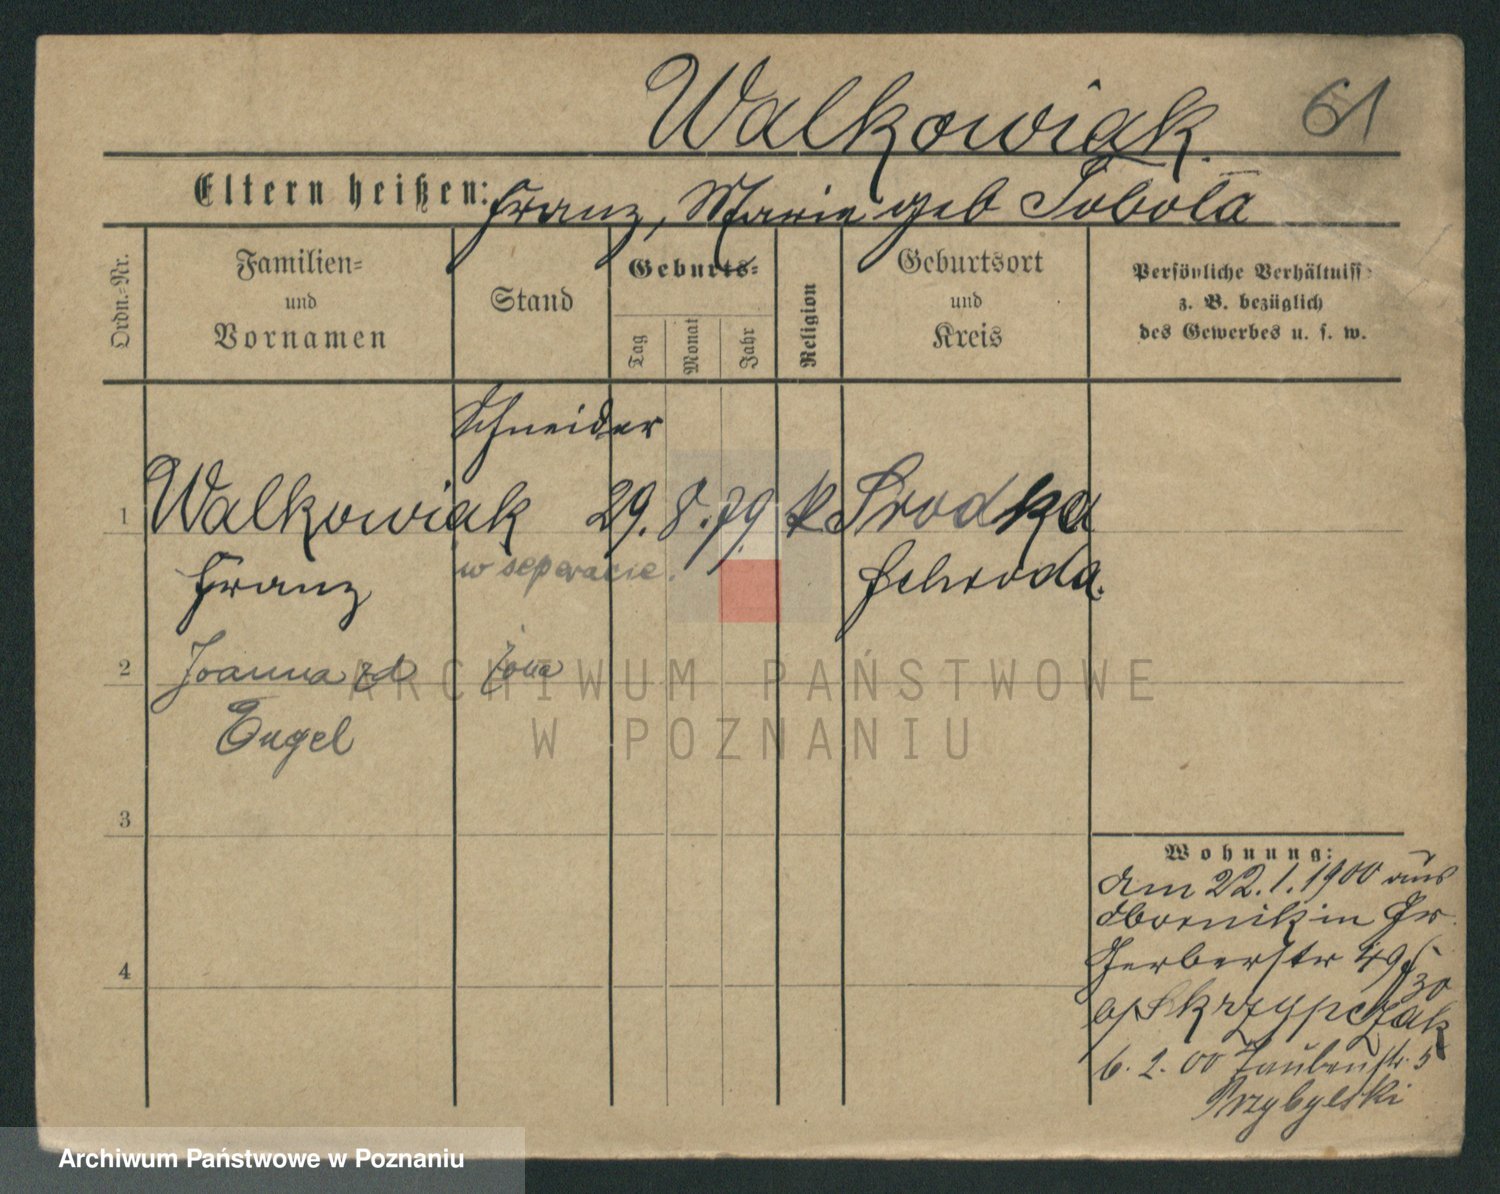 Walkowiak. 61
Eltern heißen: Franz, Marie geb Tobola
Ordn.-Nr.
Familien-
und
Vornamen
Stand
Geburts-
Tag
Monat
Jahr
Religion
Geburtsort
und
Kreis
Persönliche Verhältnisse
z. B. bezüglich
des Gewerbes u. s. w.
Schneider
1 Walkowiak 29. 8. 79 k Srodka
Franz w seperacie. Schroda.
2 Joanna zd żona
Engel
3
4
Wohnung:
am 22.1.1900 aus
Obornik in Gr.
Gerberstr 49
b/ Skrzypczak
6. 2. 00 Taubenstr. 5
Przybylski
ARCHIWUM PAŃSTWOWE
W POZNANIU
Archiwum Państwowe w Poznaniu